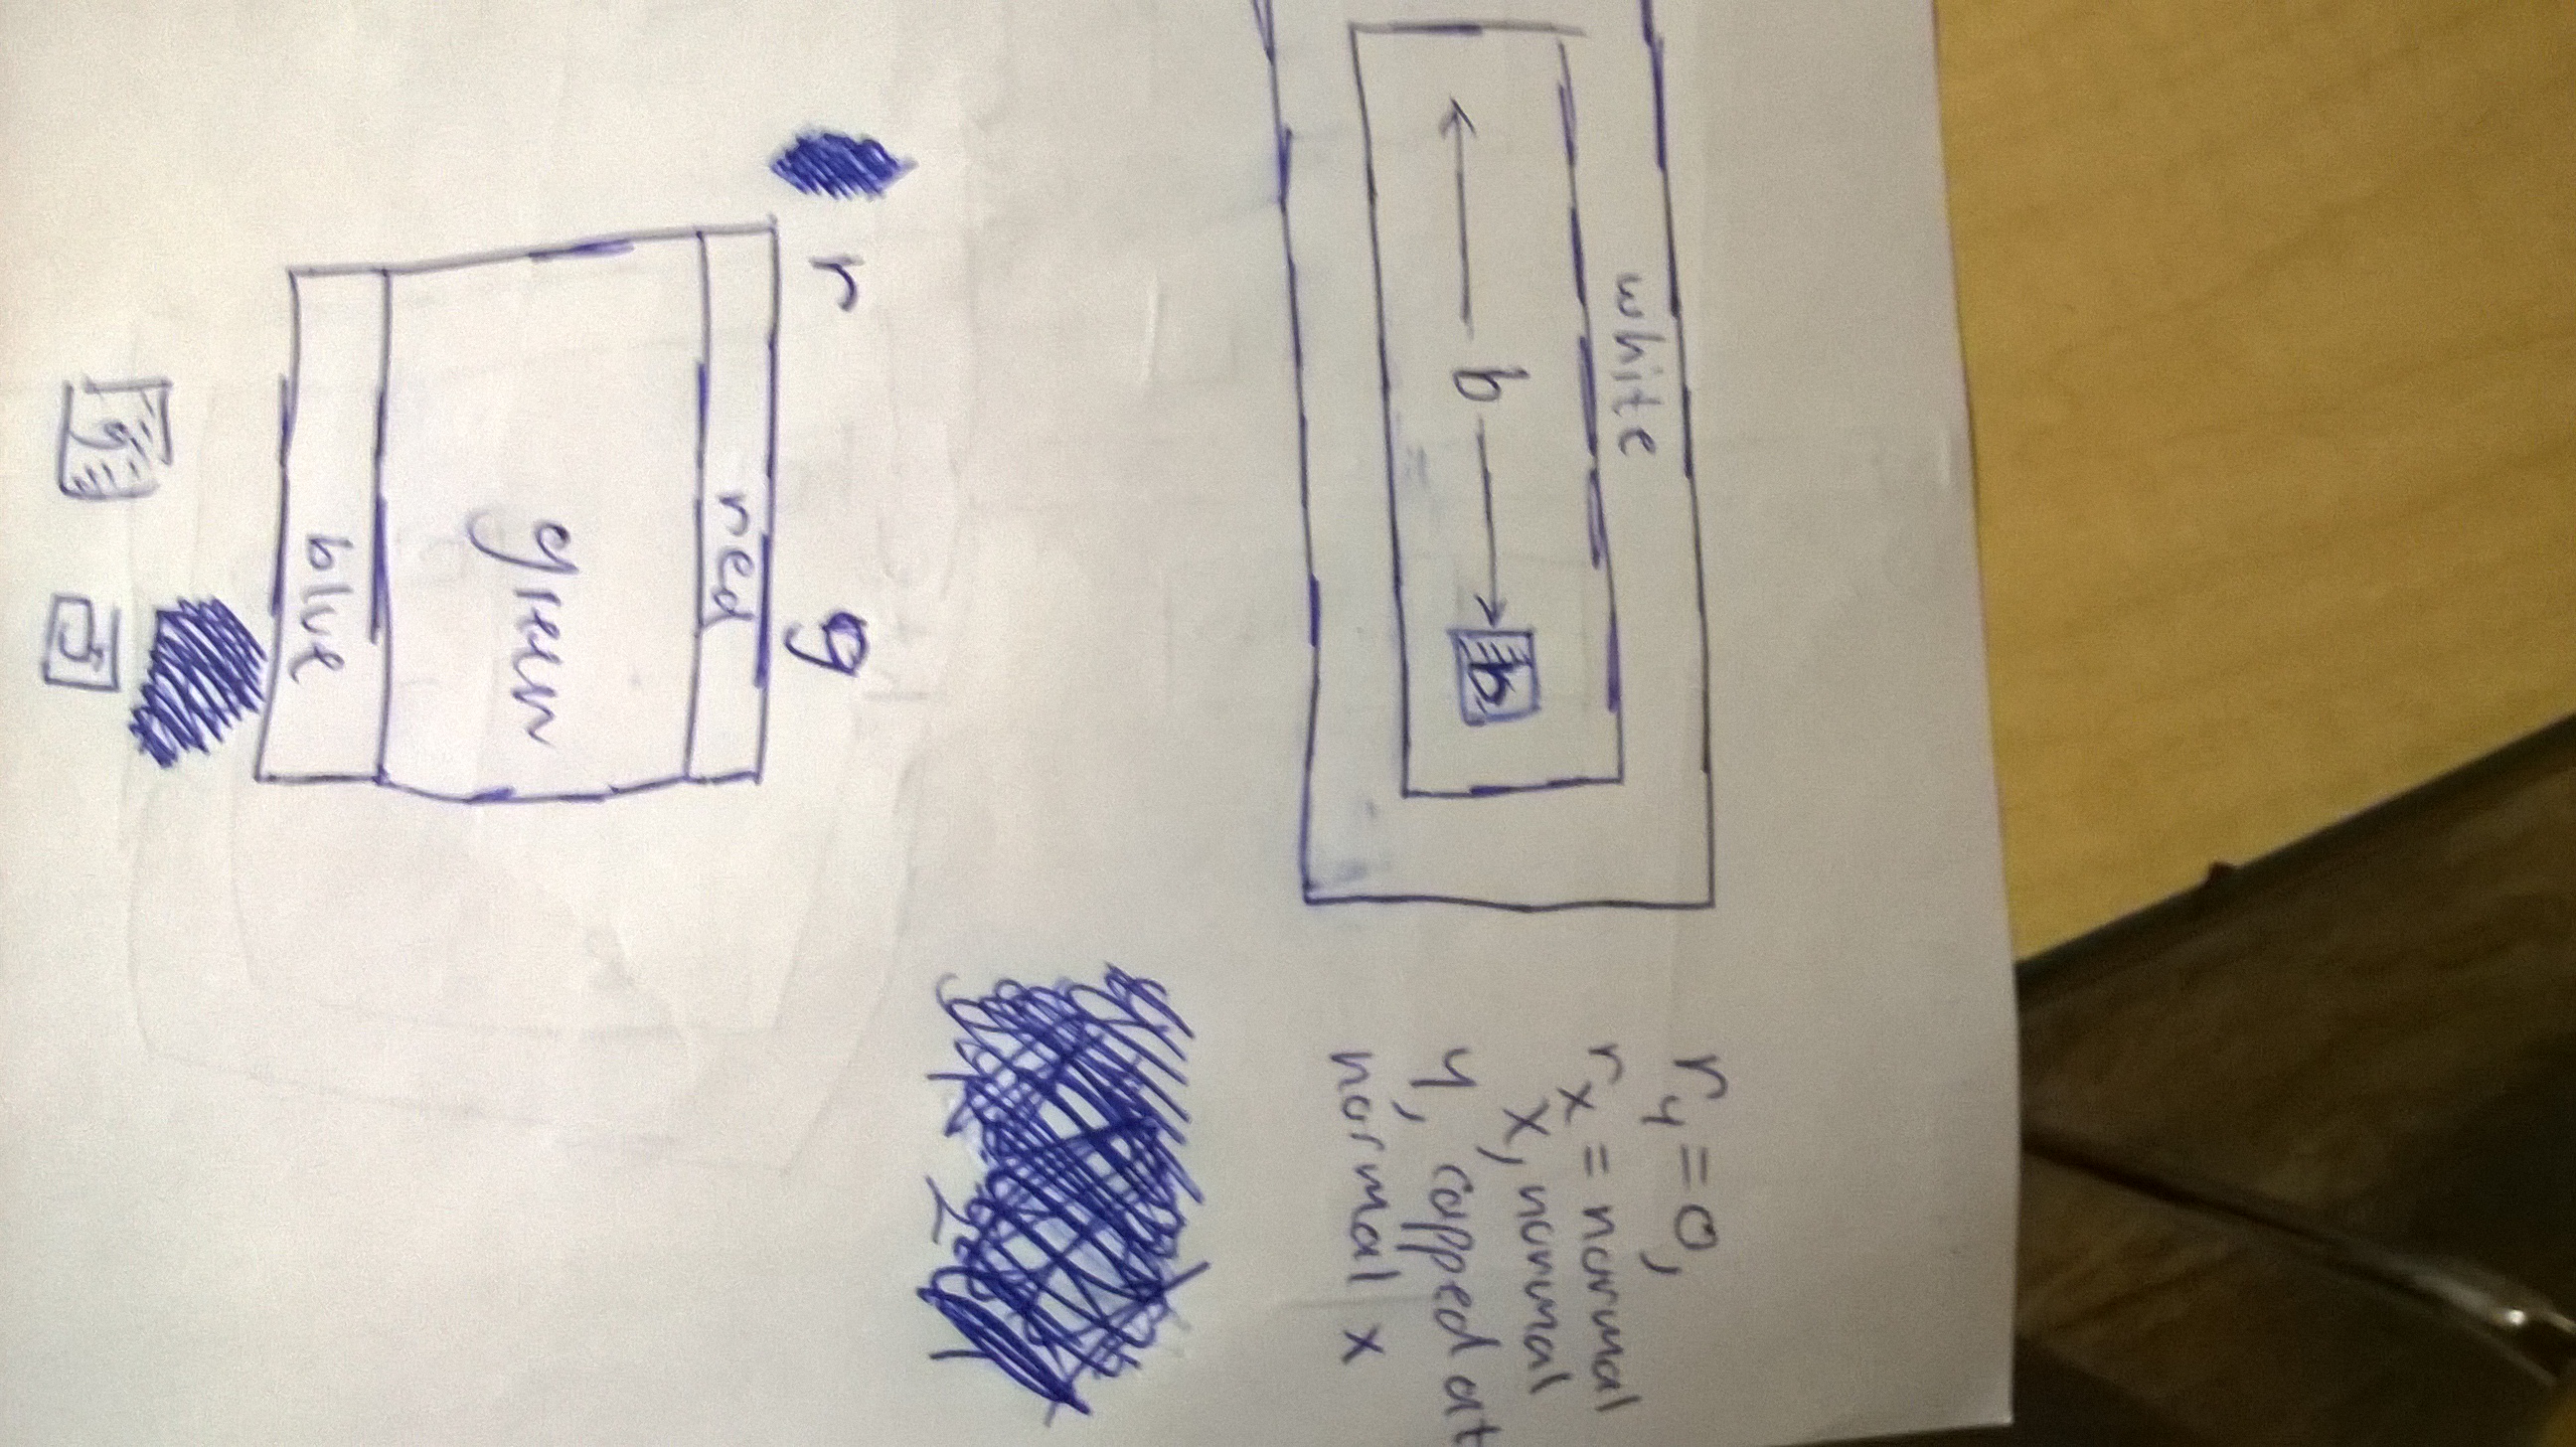 white
b
b
r y = 0,
r x = normal
x, normal
y, capped at
normal x
r g
red
green
blue
g